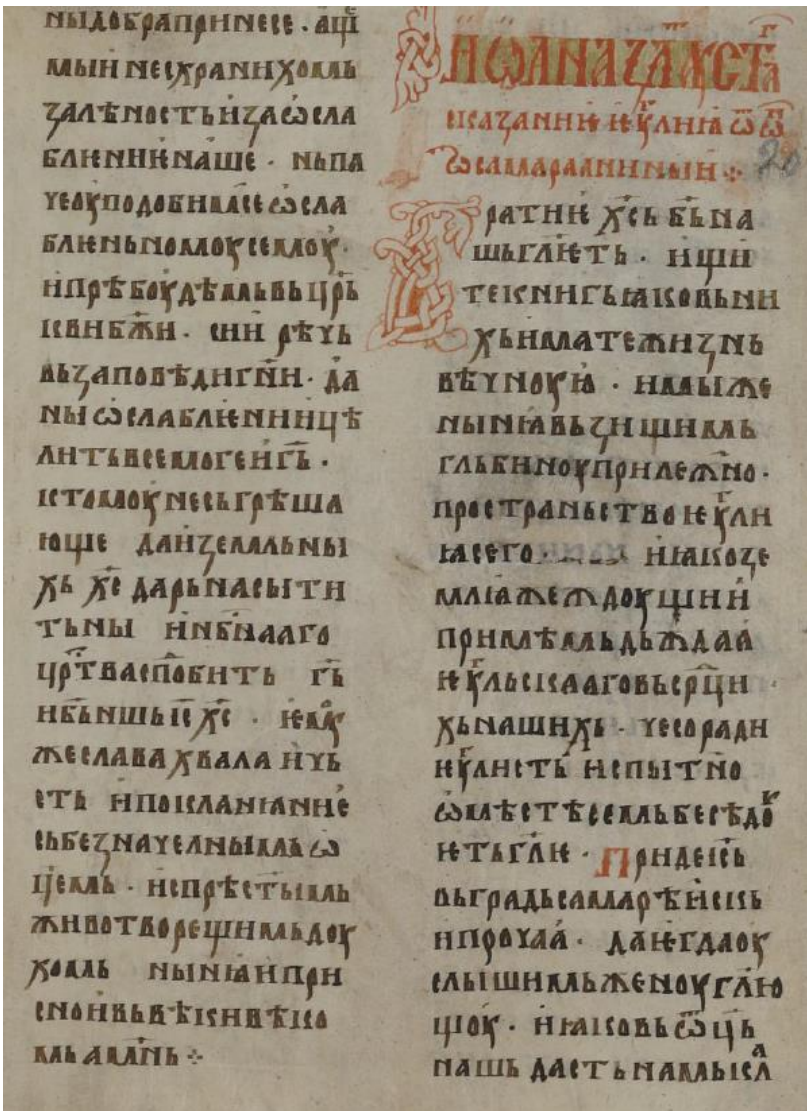 ны добра принесе · аще
мы и не схранихомь
за лѣность и за ѡсла
блѥниѥ наше · нь па
че оуподобимсе ѡсла
блѥньномоу семоу ·
и прѣбоудѣмь вь цр҃ь
кви бж҃и · сии рѣчь
вь заповѣди гн҃и · да
ны ѡслаблѥнии цѣ
лить всемоги г҃ь ·
к томоу не сьгрѣша
юще да и земльны
хь х҃с дарь насыти
ть ны и нб҃наго
цр҃тва спо҃бить г҃ь
и б҃ь ншь і҃с х҃с · ѥмоу
же слава хвала и чь
сть и покланꙗниѥ
сь безначелнымь ѡ
ц҃емь · и с прѣс҃тымь
животворещимь доу
хомь нынꙗ и при
сно и вь вѣкы вѣко
мь амнь ⁘
Иѡана златоуста
сказаниѥ ѥу҃лиꙗ ѿ і҃ѡ
ѡ самараниныни ⁘
Братиѥ х҃сь б҃ь на
шь гл҃ѥть · ищи
те книгь ꙗко вь ни
хь имате жизнь
вѣчноую · и мы же
нынꙗ вьзищимь
гльбиноу прилежно ·
пространьство ѥу҃ли
ꙗ сего · и ꙗко зе
млꙗ жеждоущиꙗ
приимѣмь дьжда
ѥу҃льскааго вь ср҃ци
хь нашихь · чесо ради
ѥу҃листь испытно
ѡ мѣстѣ семь бесѣдоу
ѥть гл҃ѥ · приде і҃сь
вь градь самарѣискь
и прочаа · да ѥгда оу
слышимь женоу гл҃ю
щоу · и ꙗковь ѿць
нашь дасть намь скл